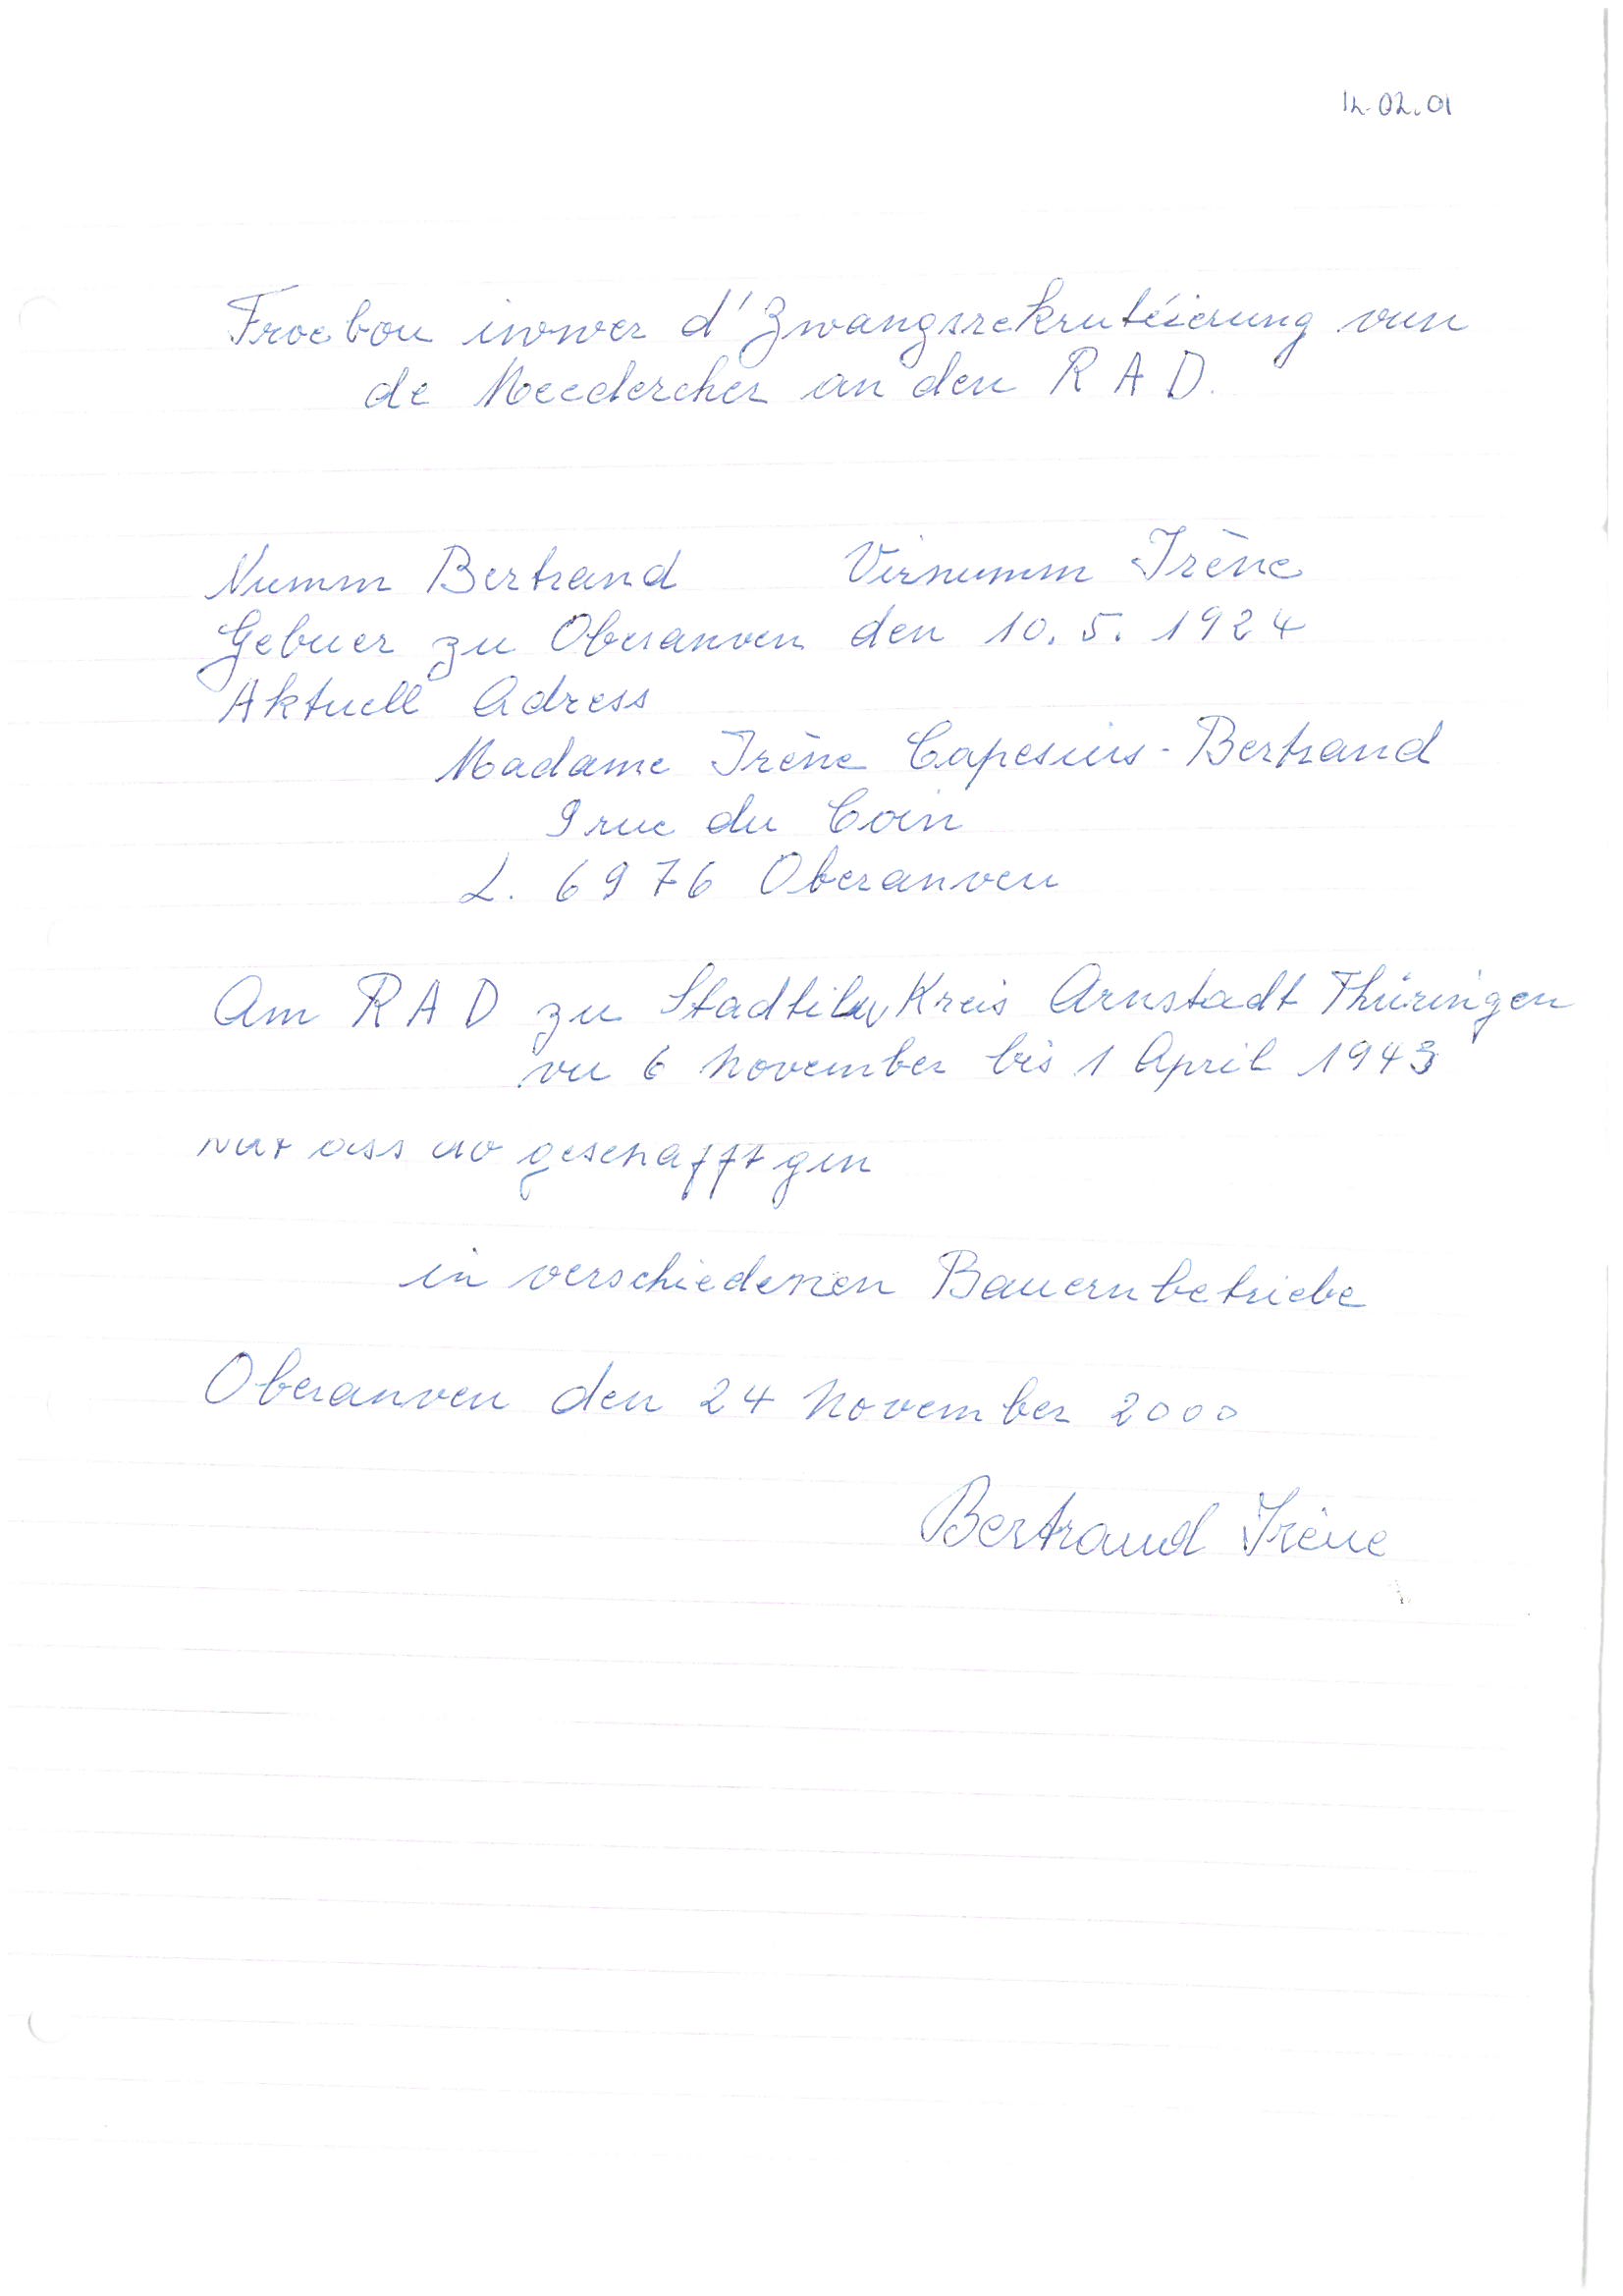 12.02.01
Froebou iwwer d'Zwangsrekrutéierung vun
de Meedercher an den R A D.
Numm Bertrand Virnumm Irène
Gebuer zu Oberanven den 10. 5. 1924
Aktuell Adress
Madame Irène Capesius - Bertrand
9 rue du Coin
L. 6976 Oberanven
Am R A D zu Stadtilm Kreis Arnstadt Thüringen
vu 6 November bis 1 April 1943
Wat ass do geschafft gin
in verschiedenen Bauernbetriebe
Oberanven den 24 November 2000
Bertrand Irène